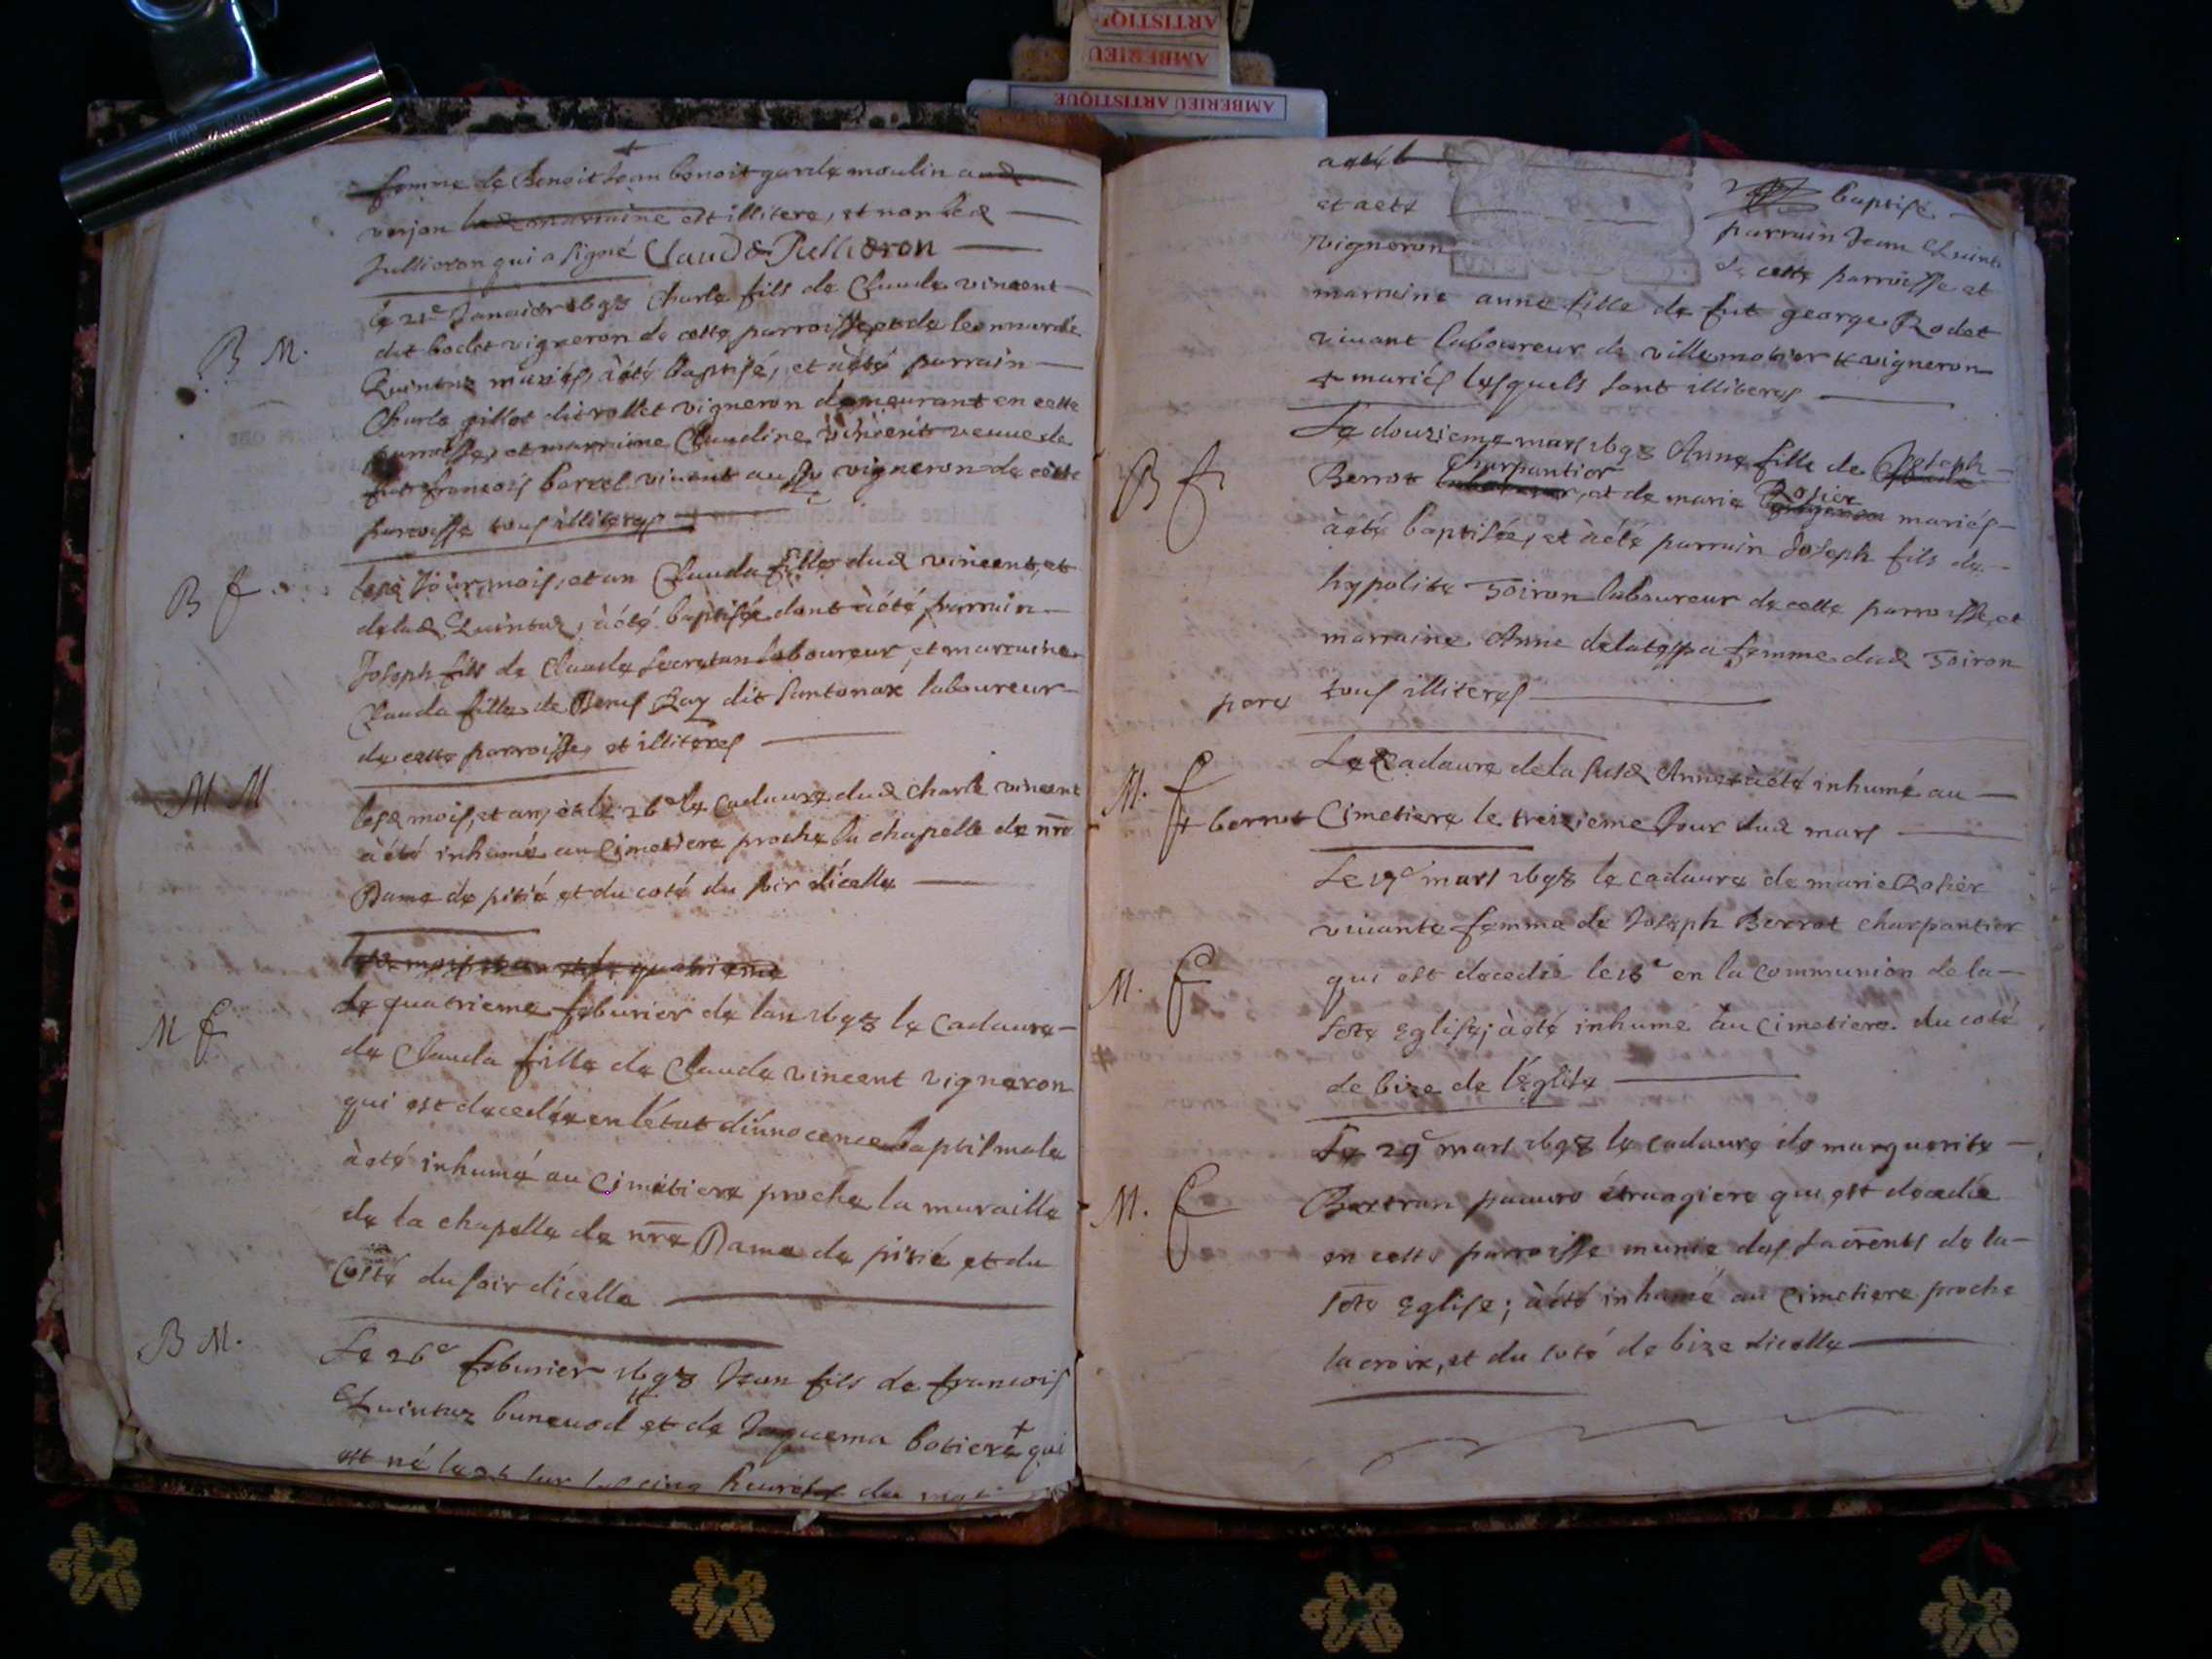 AMBERIEU ARTISTIQUE
femme de Benoit Jean benoit garde moulin aud
verjon lad marraine est illitere, et non led
Jullieron qui a signé Claude Jullieron
B M.
le 21e Janvier 1698 Charle fils de Claude vincent
dit bodet vigneron de cette parroisse, et de leonnarde
Quintaz mariés, à été baptisé, et à été parrain
Charle gillet dit rollet vigneron demeurant en cette
parroisse, et marraine Claudine vincent veuve de
fut françois barcel vivant aussy vigneron de cette
parroisse tous illiteres
B f
lesd Jour, mois, et an Clauda fille dud vincent, et
delad Quintaz, à été baptisée dont à été parrain
Joseph fils de Claude secretan laboureur, et marraine
Clauda fille de Denis Ray dit santonax laboureur
de cette parroisse, et illiteres
M M
lesd mois, et an, et le 26e le Cadavre dud Charle vincent
à été inhumé au Cimetiere proche la chapelle de nre
Dame de pitié et du coté du soir dicelle
lesd mois et an et le quatrieme
M f
Le quatrieme feburier de lan 1698 le Cadavre
de Clauda fille de Claude vincent vigneron
qui est decedée en l'état d'innocence baptismale
à été inhumé au Cimetiere proche la muraille
de la chapelle de nre Dame de pitié et du
Costé du soir dicelle
B M.
Le 26e feburier 1698 Jean fils de françois
Quintaz buneuod et de Jaquema botiere + qui
est né le sur les cinq heures du
à été baptisé
et à été parrain Jean Quint
vigneron de cette parroisse et
marraine anne fille de fut george Rodet
vivant laboureur de villemotier & vigneron
+ mariés lesquels sont illiteres
B f
Le douzieme mars 1698 Anne fille de Joseph
Berrot Charpantier, et de marie Rosier mariés
à été baptisée, et à été parrain Joseph fils de
hypolite Toiron laboureur de cette parroisse, et
marraine Anne femme dud Toiron
pere tous illiteres
M. f
Le Cadavre de la susd Anne + à été inhumé au
+ berrot Cimetiere le treizieme Jour dud mars
M. f
Le 17e mars 1698 le cadavre de marie Rosier
vivante femme de Joseph Berrot charpantier
qui est decedée le 16e en la Communion de la
ste Eglise; à été inhumé au Cimetiere du coté
de bize de l'église
M. f
Le 29e mars 1698 le Cadavre de marguerite
Bertran pauvre étrangiere qui est decedée
en cette parroisse munie des sacrents de la
ste Eglise; à été inhumé au Cimetiere proche
la croix, et du coté de bize dicelle